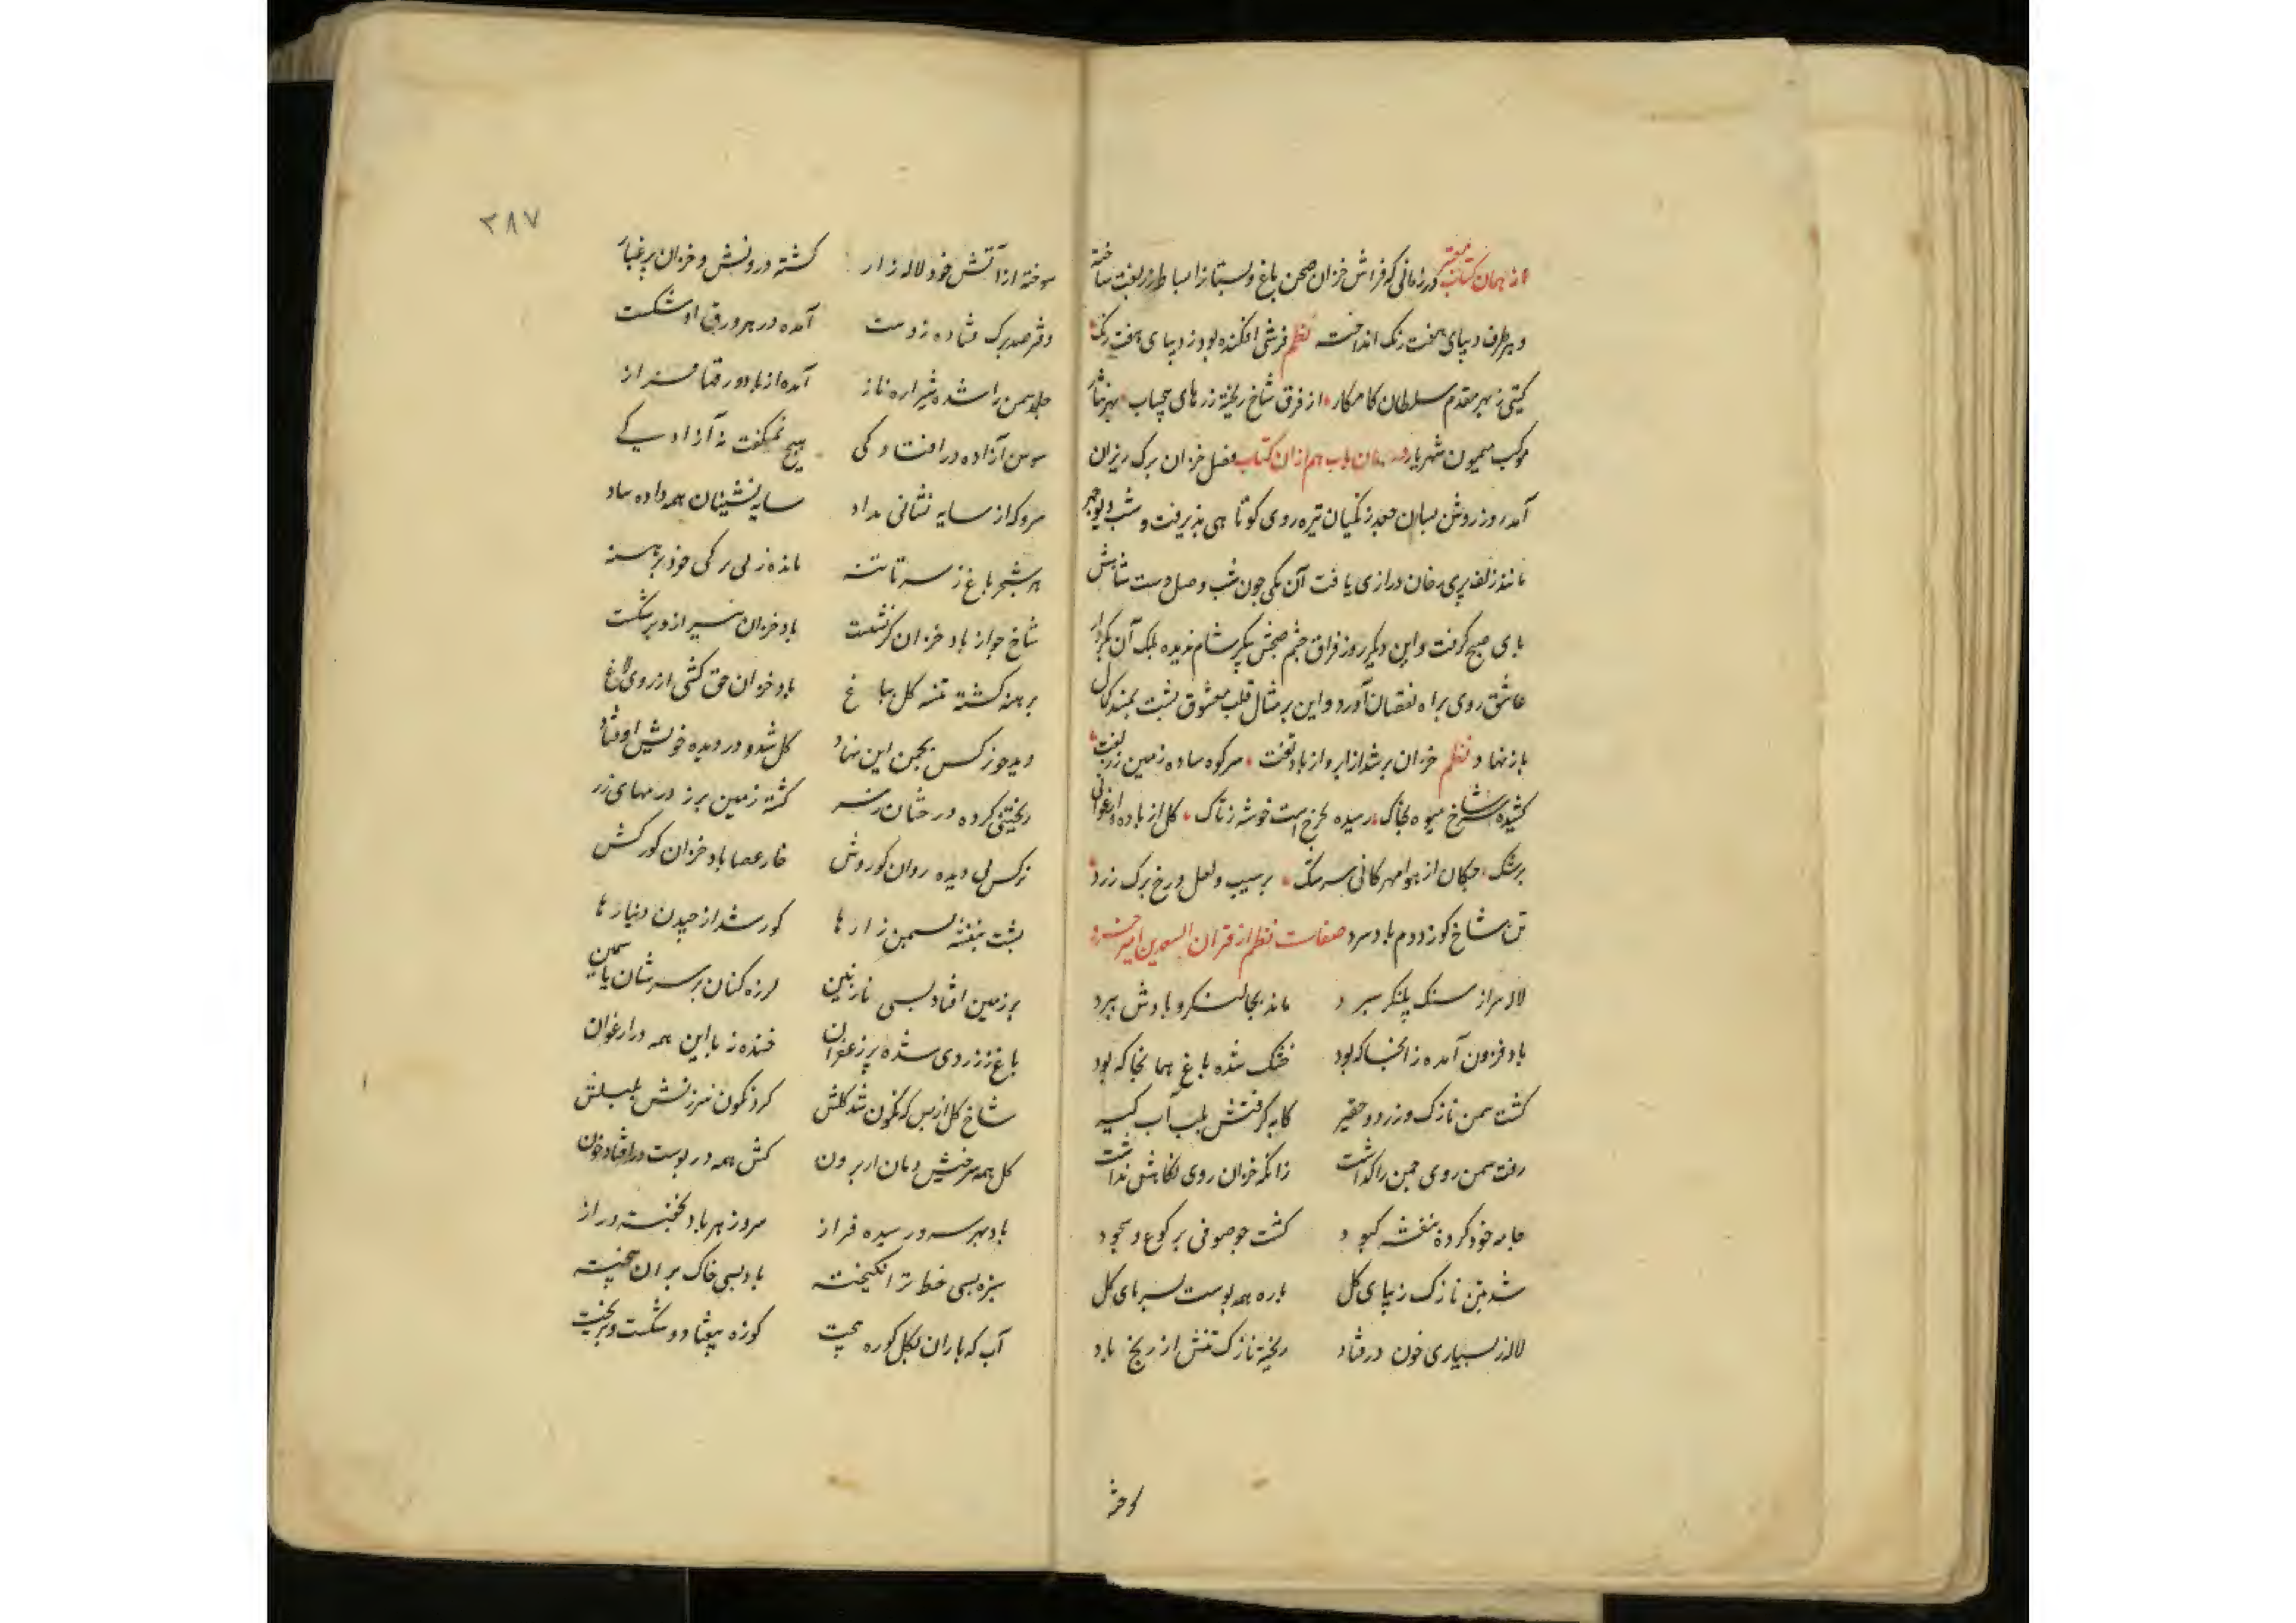 از همان کتاب معتبر در زمانی که فراش خزان صحن باغ و بستانرا بساط زربفت ساخته
و بهر طرف دیبای هفت رنک انداخته نظم فرشی افکنده بود ز دیبای هفت رنک
کیتی ز بهر مقدم سلطان کامکار از فرق شاخ ریخته زرهای بهر نثار
موکب همیون شهریار همان باب هم ازان کتاب فصل خزان برک ریزان
آمد روز روشن بسان زنکیان تیره روی کوتاهی پذیرفت و شب
مانند زلف پری رخان درازی یافت آن یکی چون شب وصل دست
بای صبح کرفت و این دیکر روز فراق چشم صبحش پیکر شام ندیده بلک آن
عاشق روی براه نقصان آورد و این بر مثال قلب معشوق پشت بمسند کمال
باز نهاد نظم خزان بر شد از ابر و از باد تفت سر کوه ساده زمین زربفت
کشیده سر شاخ میوه بخاک رسیده بچرخ است خوشه ز تاک کل از باده ارغوانی
برشک چکان از هوا مهرکانی سرشک بر سیب و لعل و رخ برک زرد
تن شاخ کوز و دم باد سرد صفات نظم از قران السعدین امیر خسرو
لاله سر از سنک پلنکر سپرد ماند بجا لنکر و بادش ببرد
باد فزون آمد ز انجا که بود خشک شده باغ همانجا که بود
کشت سمن نازک و زرد و حقیر کابه کرفتش بلب آب کیر
رفت سمن روی چمن را کذاشت زانکه خزان روی نکاهش نداشت
جامه خود کرده بنفشه کبود کشت چو صوفی برکوع و سجود
شد تن نازک ز پای کل پاره همه پوست بسر پای کل
لاله ز بسیاری خون درفتاد ریخته نازک تنش از ریخ باد
سوخته
۳۸۷
سوخته از آتش خود لاله زار کشته درونش و خزان پر غبار
دفتر صد برک فتاده ز دست آمده در هر ورق او شکست
جلد سمن را شده شیرازه باز آمده از باد ورقها فراز
سوسن آزاده در افتادکی هیچ نمیکفت ز آزادیکی
سرو که از سایه نشانی نداد سایه نشینان همه داده بباد
هر شجر باغ ز سر تا تنه مانده ز بی برکی خود برهنه
شاخ چو از باد خزان کرنشست باد خزان نیز از و برشکست
برهنه کشته تنه کل بباغ باد خزان حق کشی از روی لاغ
دید چو نرکس بچمن این نهاد کل شد و در دیده خویش اوفتاد
ریختنی کرده درختان ز سر کشته زمین پر ز درمهای زر
نرکس بی دیده روان کوروش خار عصا باد خزان کور کش
پشت بنفشه بسمن زارها کور شد از چیدن دینارها
بر زمین افتاد بسی نازنین لرزه کنان بر سر شان یاسمین
باغ ز زردی شده پر زعفران خنده ز با این همه در ارغوان
شاخ کل از بس که نکون شد کلش کرد نکون سرزنش بلبلش
کل همه سر خیش دمان از برون کش همه در پوست در افتاد خون
باد بهر سرو رسیده فراز سرو ز هر باد بخفته دراز
سبزه بسی خط تر انکیخته باد بسی خاک بران بیخته
آب که باران بکل کوزه بیخت کوزه بیفتاد و شکست و بریخت